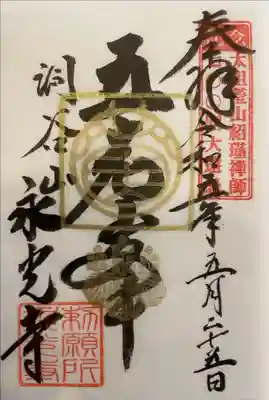 太祖瑩山紹瑾禅師
奉拝 令和五年五月二十五日
五老峯
洞谷山 永光寺